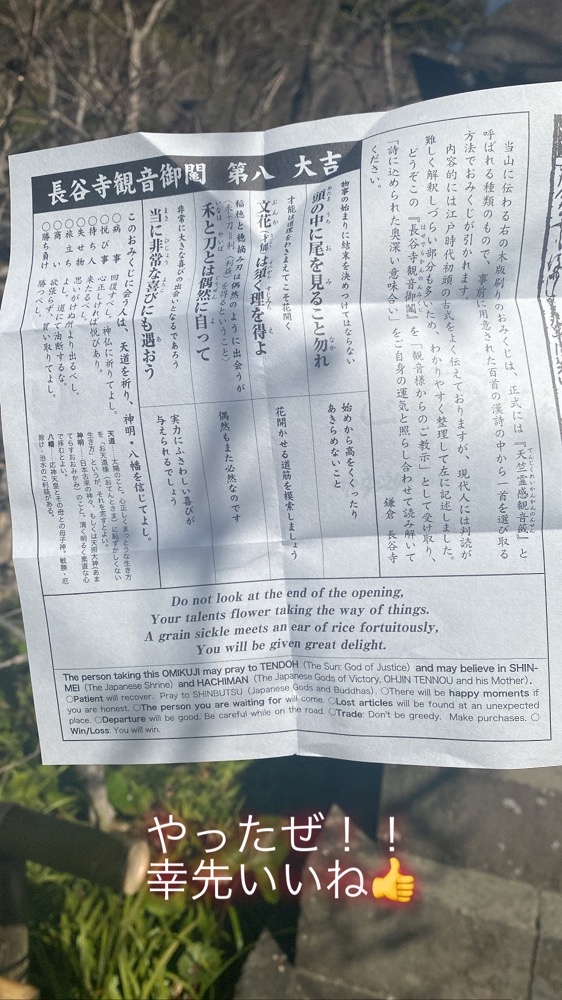 長谷寺観音御鬮 第八 大吉
当山に伝わる右の木版刷りのおみくじは、正式には『天竺霊感観音籤』と
呼ばれる種類のもので、事前に用意された百首の漢詩の中から一首を選び取る
方法でおみくじが引かれます。
内容的には江戸時代初頭の古式をよく伝えておりますが、現代人には判読が
難しく解釈しづらい部分も多いため、わかりやすく整理して左に記述しました。
どうぞこの『長谷寺観音御鬮』を「観音様からのご教示」として受け取り、
「詩に込められた奥深い意味合い」をご自身の運気と照らし合わせて読み解いて
ください。
鎌倉 長谷寺
物事の始まりに結末を決めつけてはならない
頭の中に尾を見ること勿れ
始めから高をくくったり
あきらめないこと
才能は道理をわきまえてこそ花開く
文花(才能)は須く理を得よ
花開かせる道筋を模索しましょう
稲穂と穂摘み刀は偶然のように出会うが
(禾と刀=利(利益)を得るということ)
禾と刀とは偶然に自って
偶然もまた必然なのです
非常に大きな喜びの出会いとなるであろう
当に非常な喜びにも遇おう
実力にふさわしい喜びが
与えられるでしょう
このおみくじに会う人は、天道を祈り、神明・八幡を信じてよし。
○病事 回復すべし、神仏に祈りてよし。
○悦び事 心正しければ悦びあり。
○待ち人 来たるべし。
○失せ物 思いがけぬ所より出るべし。
○旅立ち よし。道にて油断するな。
○商い 欲張らず、買い取りてよし。
○勝ち負け 勝つべし。
天道……太陽のこと。心正しくまっとうな生き方
を「お天道様(おてんとさま)に恥ずかしくない
生き方」といいが、それを志すとよい。
神明……日本古来の神々、もしくは天照大神(あま
てらすおおみかみ)のこと。清く明るく素直な心
で拝むとよい。
八幡……応神天皇とその母との母子神。戦勝・厄
除け・治水のご利益がある。
Do not look at the end of the opening,
Your talents flower taking the way of things.
A grain sickle meets an ear of rice fortuitously,
You will be given great delight.
The person taking this OMIKUJI may pray to TENDOH (The Sun: God of Justice) and may believe in SHIN-
MEI (The Japanese Shrine) and HACHIMAN (The Japanese Gods of Victory, OHJIN TENNOU and his Mother).
○Patient will recover. Pray to SHINBUTSU (Japanese Gods and Buddhas). ○There will be happy moments if
you are honest. ○The person you are waiting for will come. ○Lost articles will be found at an unexpected
place. ○Departure will be good. Be careful while on the road. ○Trade: Don't be greedy. Make purchases. ○
Win/Loss: You will win.
やったぜ！！
幸先いいね👍